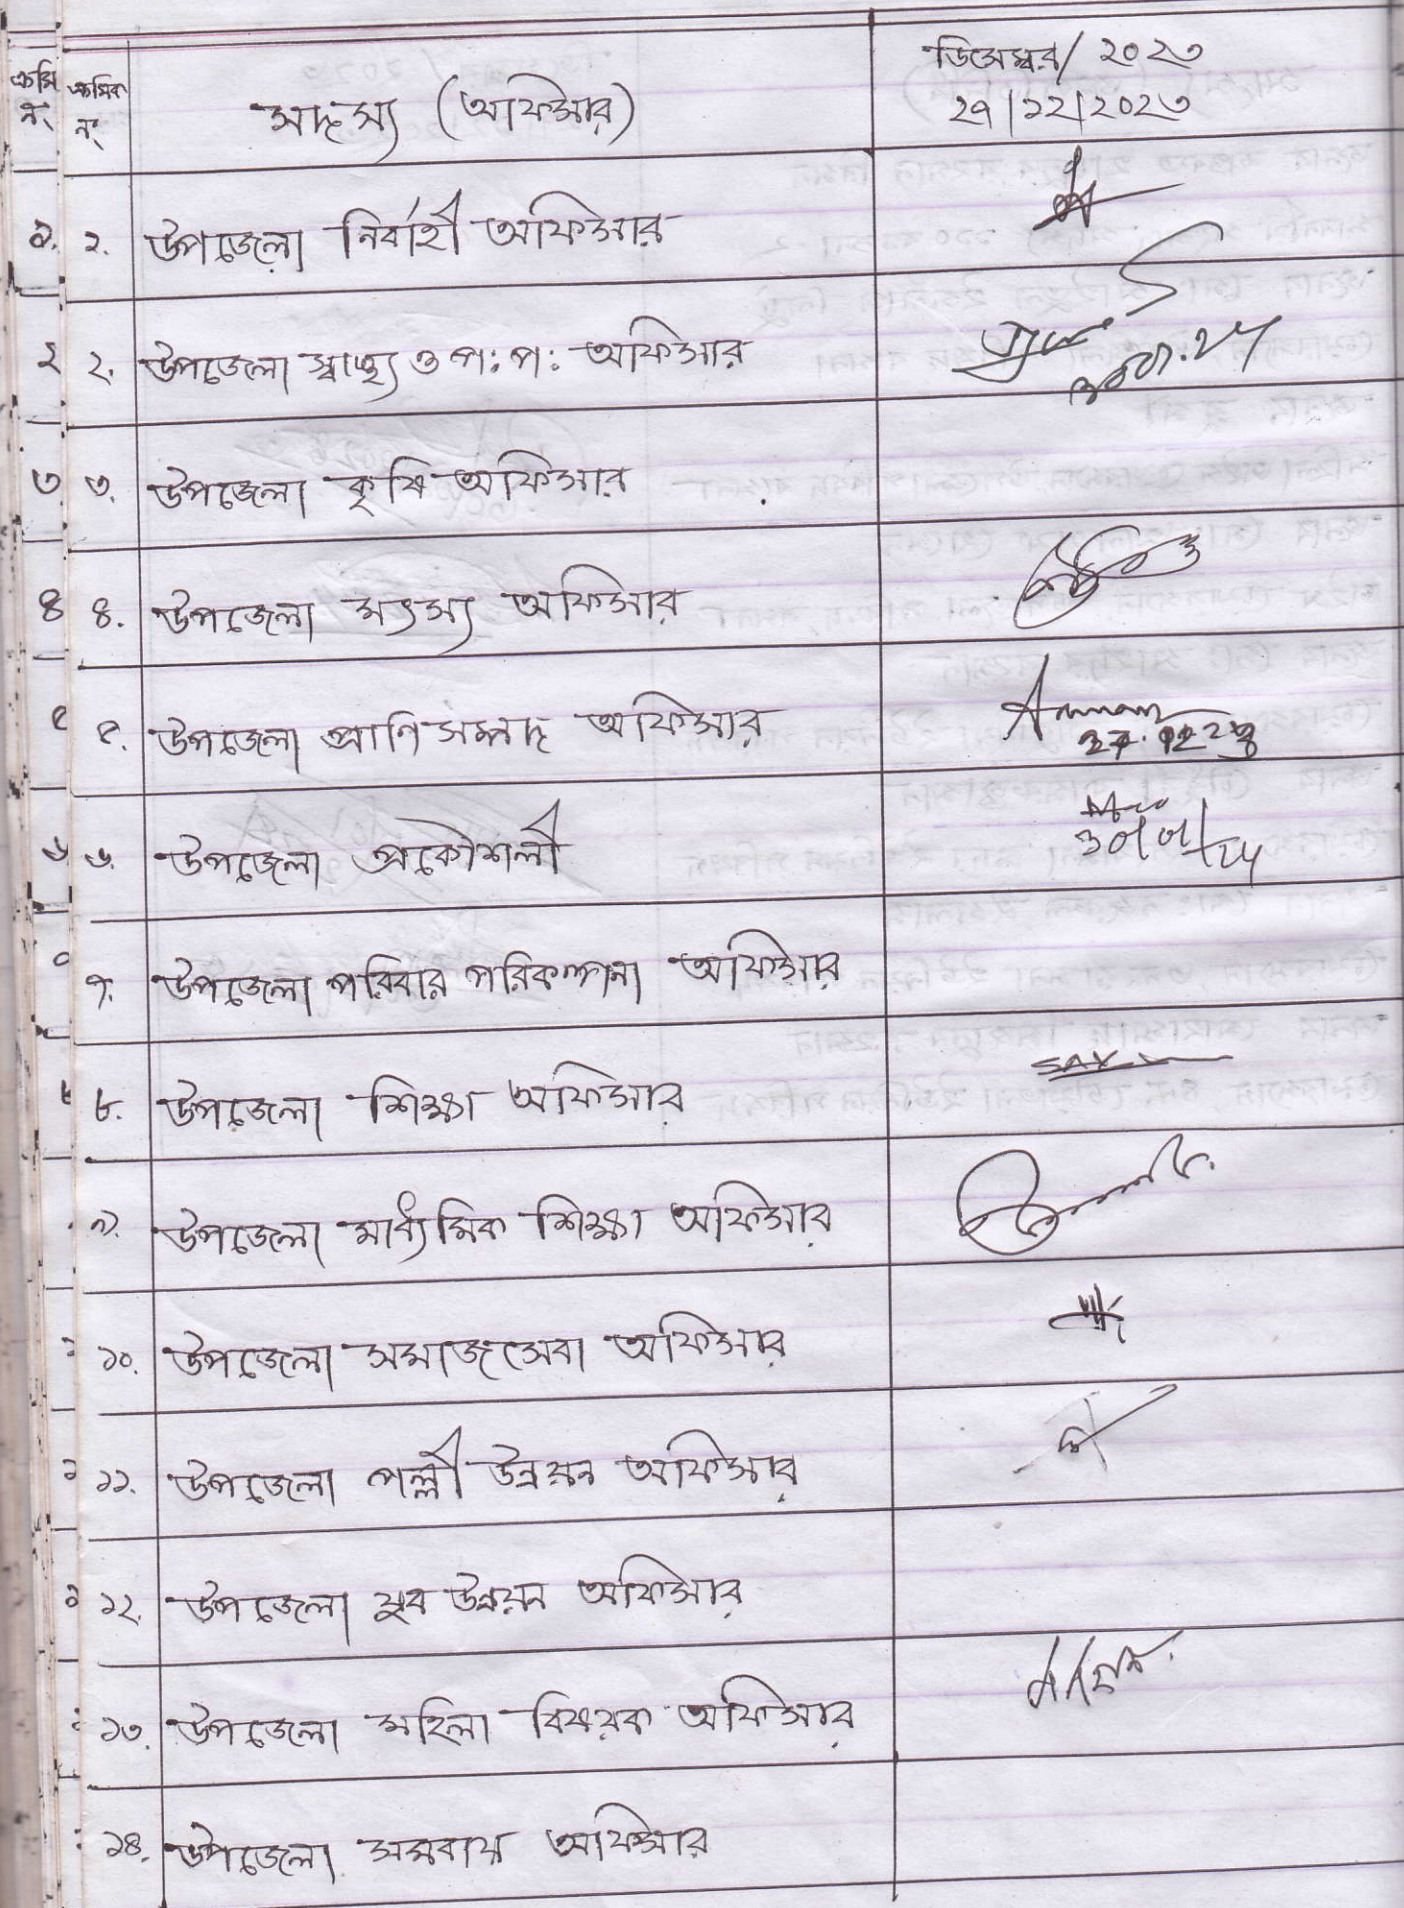 ক্রমিক নং সদস্য (অফিসার) ডিসেম্বর/২০২৩
২৭/১২/২০২৩
১. উপজেলা নির্বাহী অফিসার
২. উপজেলা স্বাস্থ্য ও প: প: অফিসার
৩. উপজেলা কৃষি অফিসার
৪. উপজেলা মৎস্য অফিসার
৫. উপজেলা প্রাণি সম্পদ অফিসার
৬. উপজেলা প্রকৌশলী
৭. উপজেলা পরিবার পরিকল্পনা অফিসার
৮. উপজেলা শিক্ষা অফিসার
৯. উপজেলা মাধ্যমিক শিক্ষা অফিসার
১০. উপজেলা সমাজসেবা অফিসার
১১. উপজেলা পল্লী উন্নয়ন অফিসার
১২. উপজেলা যুব উন্নয়ন অফিসার
১৩. উপজেলা মহিলা বিষয়ক অফিসার
১৪. উপজেলা সমবায় অফিসার